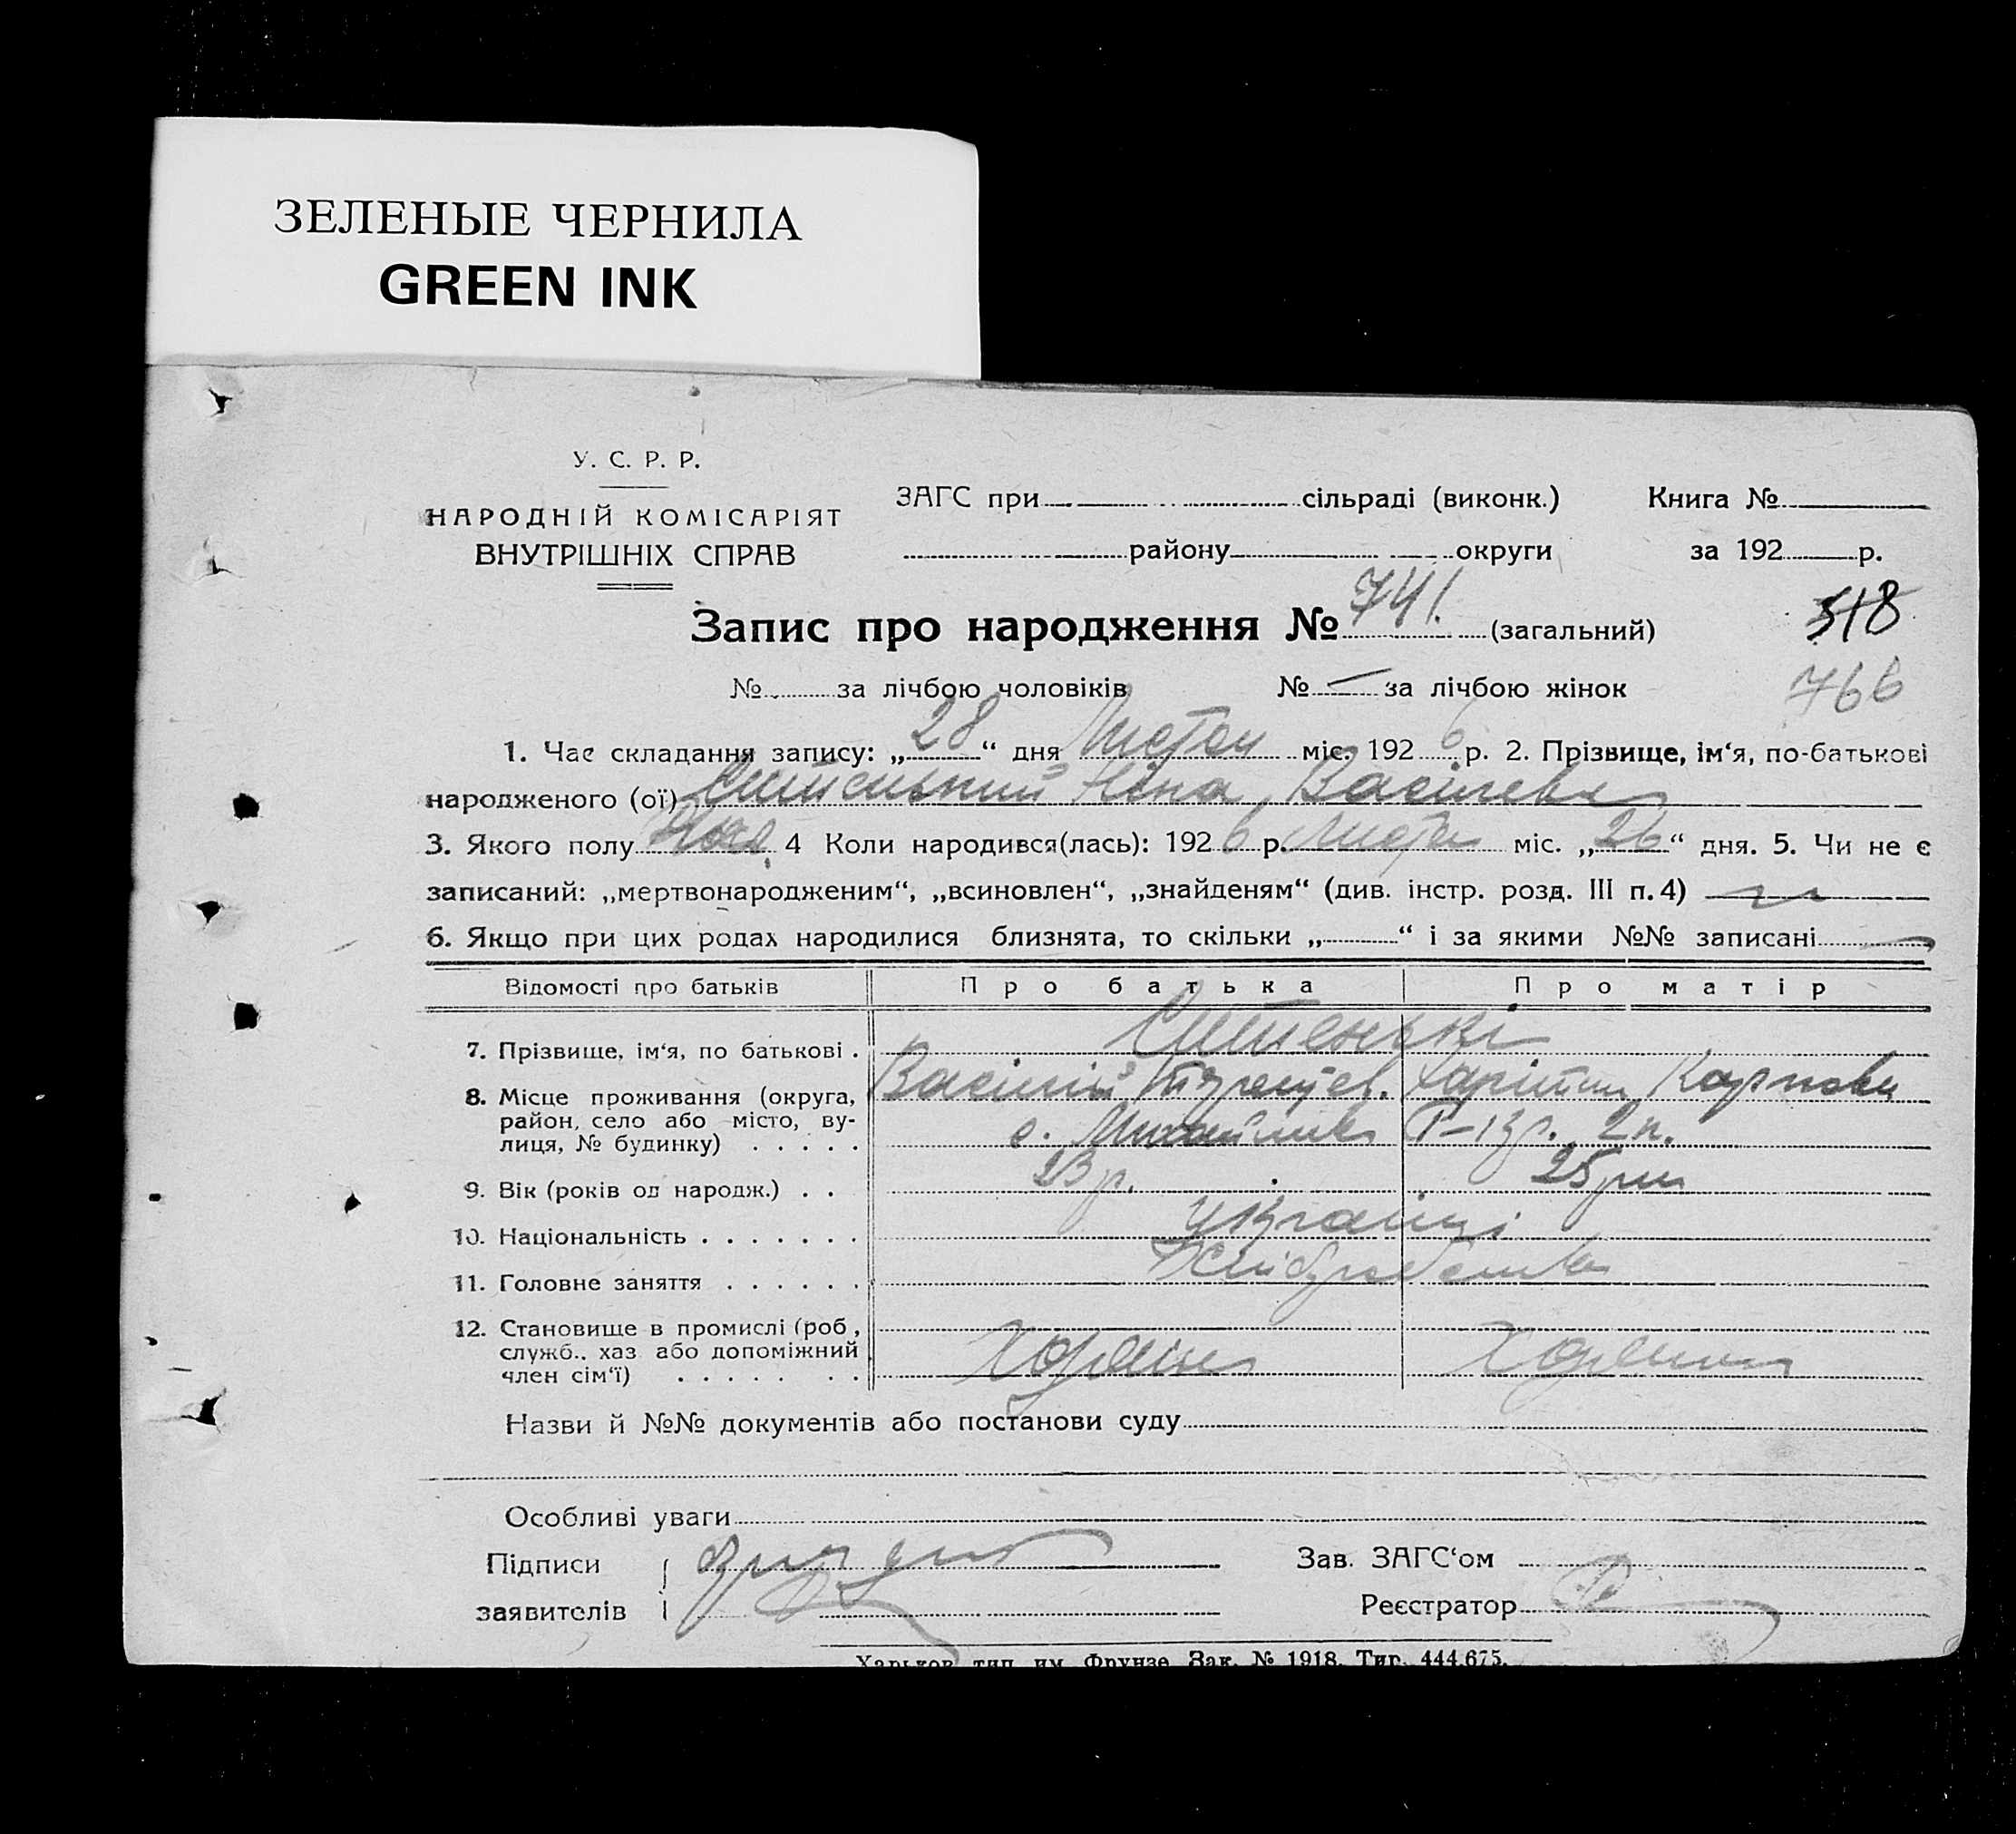 ЗЕЛЕНЫЕ ЧЕРНИЛА
GREEN INK
У. С. Р. Р.
НАРОДНІЙ КОМІСАРІЯТ
ВНУТРІШНІХ СПРАВ
ЗАГС при сільраді (виконк.) Книга №
району округи за 192 р.
Запис про народження № 741. (загальний) 518
№ за лічбою чоловіків № — за лічбою жінок 766
1. Час складання запису: „28“ дня Листоп міс. 1926 р. 2. Прізвище, ім‘я, по-батькові
народженого (ої) Ніна Васілевн
3. Якого полу жін. 4 Коли народився(лась): 1926 р. Листоп міс. „26“ дня. 5. Чи не є
записаний: „мертвонародженим“, „всиновлен“, „знайденям“ (див. інстр. розд. III п. 4)
6. Якщо при цих родах народилися близнята, то скільки „ “ і за якими №№ записані
Відомості про батьків Про батька Про матір
7. Прізвище, ім‘я, по батькові .
Васілій Карповн
8. Місце проживання (округа,
район, село або місто, ву-
лиця, № будинку) . . . . .
с. Михайлівка 2 п.
9. Вік (років од народж.) . . 23 р. 25 рік
10. Національність . . . . . . . українці
11. Головне заняття . . . . . . Хліборобство
12. Становище в промислі (роб.,
служб., хаз. або допоміжний
член сім‘ї) . . . . . . . Хозяїн Хозяйка
Назви й №№ документів або постанови суду
Особливі уваги
Підписи Зав. ЗАГС‘ом
заявителів Реєстратор
Харьков, тип. им. Фрунзе. Зак. № 1918. Тир. 444.675.